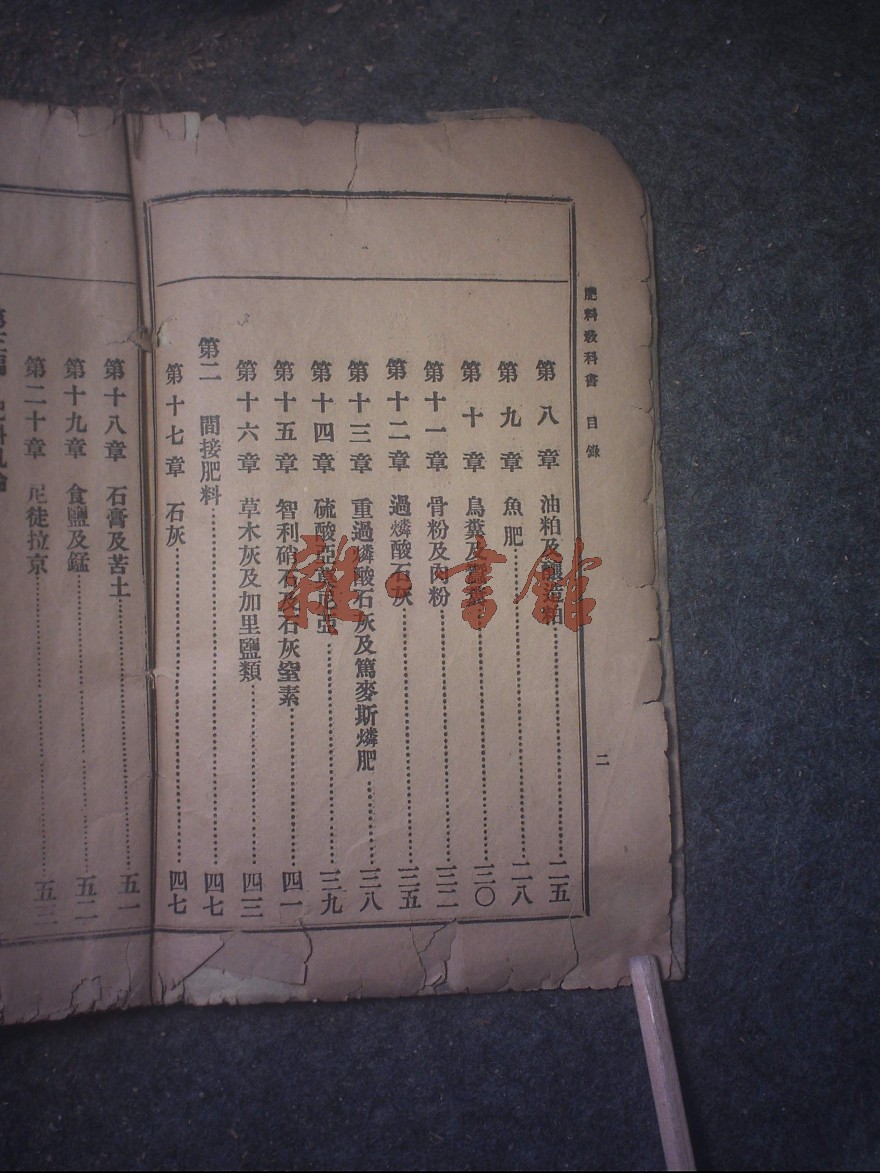 肥料教科書 目錄
二
第八章 油粕及釀造粕 二五
第九章 魚肥 二八
第十章 鳥糞及蠶糞 三〇
第十一章 骨粉及肉粉 三二
第十二章 過燐酸石灰 三五
第十三章 重過燐酸石灰及篤麥斯燐肥 三八
第十四章 硫酸亞莫尼亞 三九
第十五章 智利硝石及石灰窒素 四一
第十六章 草木灰及加里鹽類 四三
第二 間接肥料 四七
第十七章 石灰 四七
第十八章 石膏及苦土 五一
第十九章 食鹽及錳 五二
第二十章 尼徒拉京 五三
雜·書館